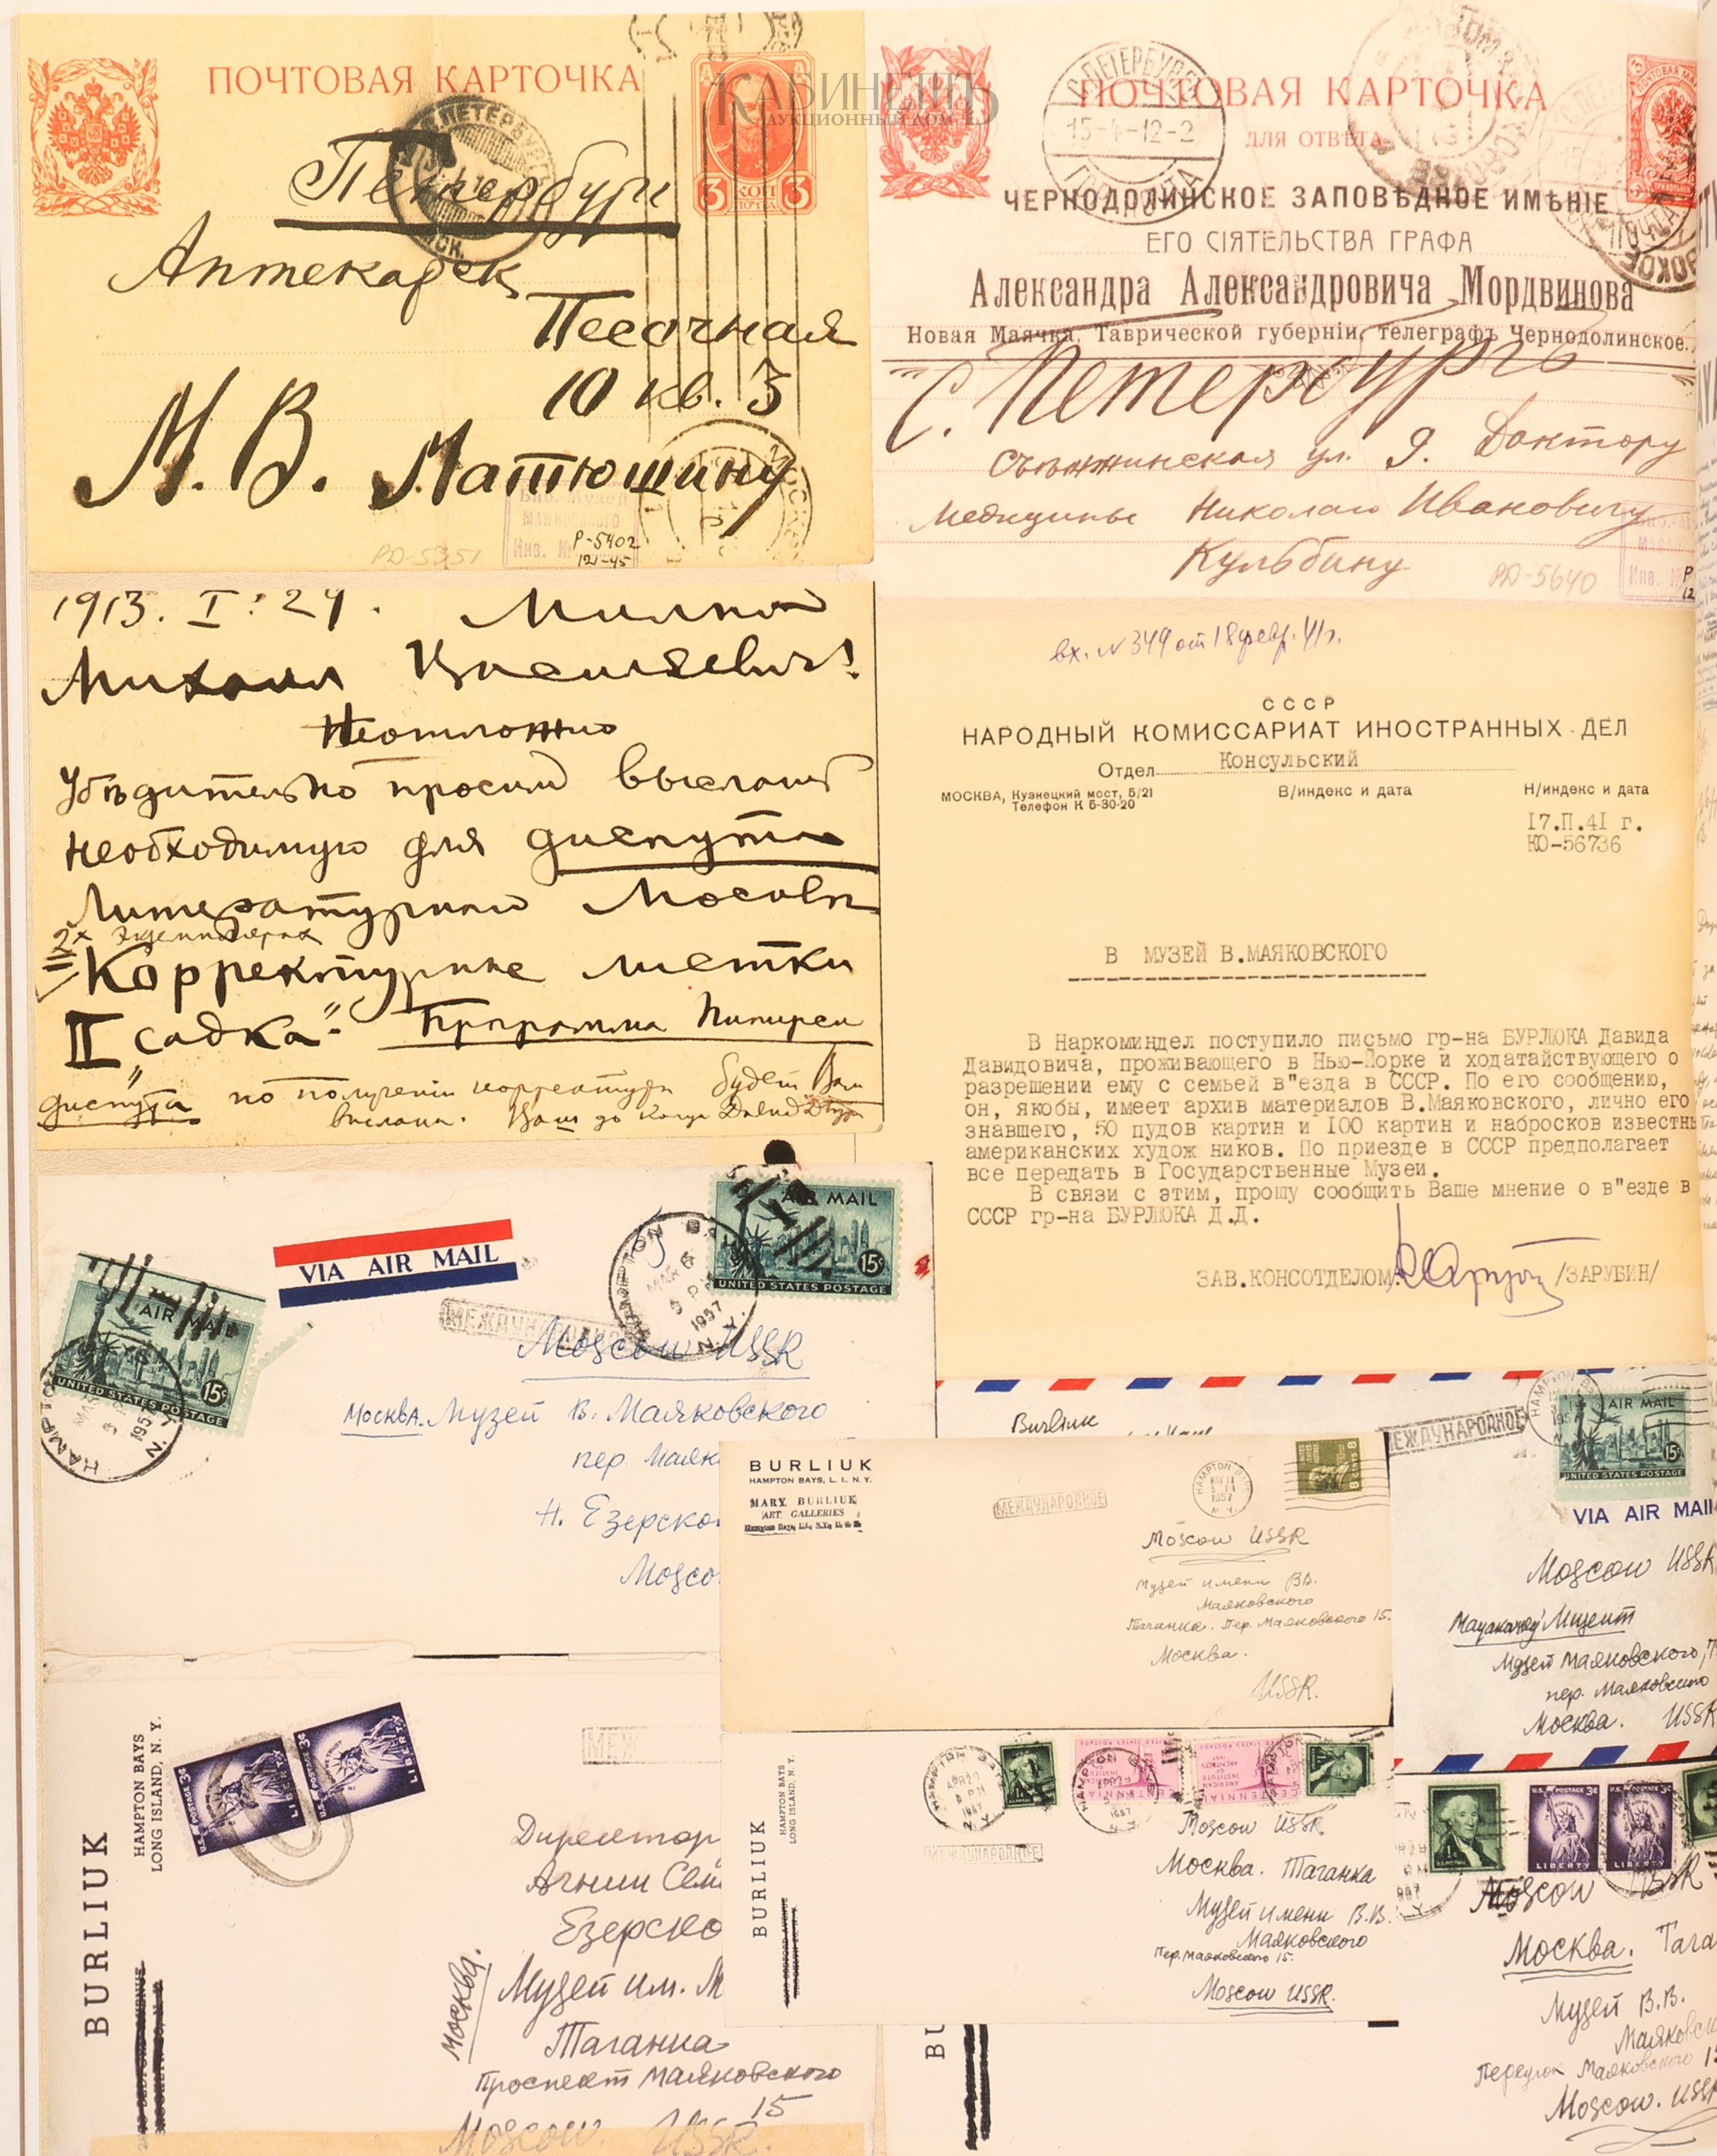 ПОЧТОВАЯ КАРТОЧКА
КАБИНЕТЪ
АУКЦИОННЫЙ ДОМ
3 КОП 3
Петербург
Аптекарск
Песочная
10 кв. 3
М. В. Матюшину
Инв. №
Р-5402
РД-5351
ПОЧТОВАЯ КАРТОЧКА
ДЛЯ ОТВѢТА
С.ПЕТЕРБУРГЪ
15-4-12-2
ЧЕРНОДОЛИНСКОЕ ЗАПОВѢДНОЕ ИМѢНІЕ
ЕГО СІЯТЕЛЬСТВА ГРАФА
Александра Александровича Мордвинова
Новая Маячка, Таврической губерніи, телеграфъ Чернодолинское.
С. Петербургъ
Съѣзжинская ул. 9. Доктору
Медицины Николаю Ивановичу
Кульбину
РД-5640
1913. I: 24. Милый
Михаил Васильевич!
Неотложно
убѣдительно просим выслать
необходимую для диспута
Литературной Москвы
2х экземплярах
Корректурные листки
II "садка"- Программа
диспута по полученіи корректуры будет Вам
выслана. Ваш до конца Давид
вх. N 349 от 18 февр. 41 г.
СССР
НАРОДНЫЙ КОМИССАРИАТ ИНОСТРАННЫХ ДЕЛ
Отдел Консульский
МОСКВА, Кузнецкий мост, 5/21
Телефон К 5-30-20
В/индекс и дата
Н/индекс и дата
17.П.41 г.
КО-56736
В МУЗЕЙ В.МАЯКОВСКОГО
В Наркоминдел поступило письмо гр-на БУРЛЮКА Давида
Давидовича, проживающего в Нью-Йорке и ходатайствующего о
разрешении ему с семьей в"езда в СССР. По его сообщению,
он, якобы, имеет архив материалов В.Маяковского, лично его
знавшего, 50 пудов картин и 100 картин и набросков известн
американских худож ников. По приезде в СССР предполагает
все передать в Государственные Музеи.
В связи с этим, прошу сообщить Ваше мнение о в"езде в
СССР гр-на БУРЛЮКА Д.Д.
ЗАВ.КОНСОТДЕЛОМ /ЗАРУБИН/
VIA AIR MAIL
AIR MAIL
UNITED STATES POSTAGE
15¢
AIR MAIL
15¢
UNITED STATES POSTAGE
HAMPTON BAYS N.Y.
MAR 6
1957
МЕЖДУНАРОДНОЕ
Moscow USSR
Москва. Музей В. Маяковского
пер. Маяк
Н. Езерско
Mosco
Burliuk
МЕЖДУНАРОДНОЕ
AIR MAIL
15¢
UNITED STATES POSTAGE
VIA AIR MAIL
Moscow USSR
Музей Маяковского,
пер. Маяковского
Москва. USSR
BURLIUK
HAMPTON BAYS, L. I., N. Y.
MARY BURLIUK
ART GALLERIES
МЕЖДУНАРОДНОЕ
HAMPTON BAYS
1957
N. Y.
8 CENTS 8
Moscow USSR
Музей имени ВВ.
Маяковского
Таганка. Пер. Маяковского 15.
Москва.
USSR.
BURLIUK
HAMPTON BAYS
LONG ISLAND, N. Y.
U.S. POSTAGE 3¢
LIBERTY
U.S. POSTAGE 3¢
LIBERTY
Директор
Агнии Сем
Езерско
Москва.
Музей им. М
Таганка
Проспект Маяковского
15
Moscow. USSR.
BURLIUK
HAMPTON BAYS
LONG ISLAND, N. Y.
HAMPTON BAYS
APR 29
1957
N. Y.
AMERICAN INSTITUTE OF ARCHITECTS
CENTENNIAL
МЕЖДУНАРОДНОЕ
Moscow USSR
Москва. Таганка
Музей имени В.В.
Маяковского
Пер. Маяковского 15.
Moscow USSR.
BU
U.S. POSTAGE 3¢
LIBERTY
LIBERTY
Moscow USSR
Москва. Тага
Музей В.В.
Маяковск
Переулок Маяковского 15
Moscow. USSR